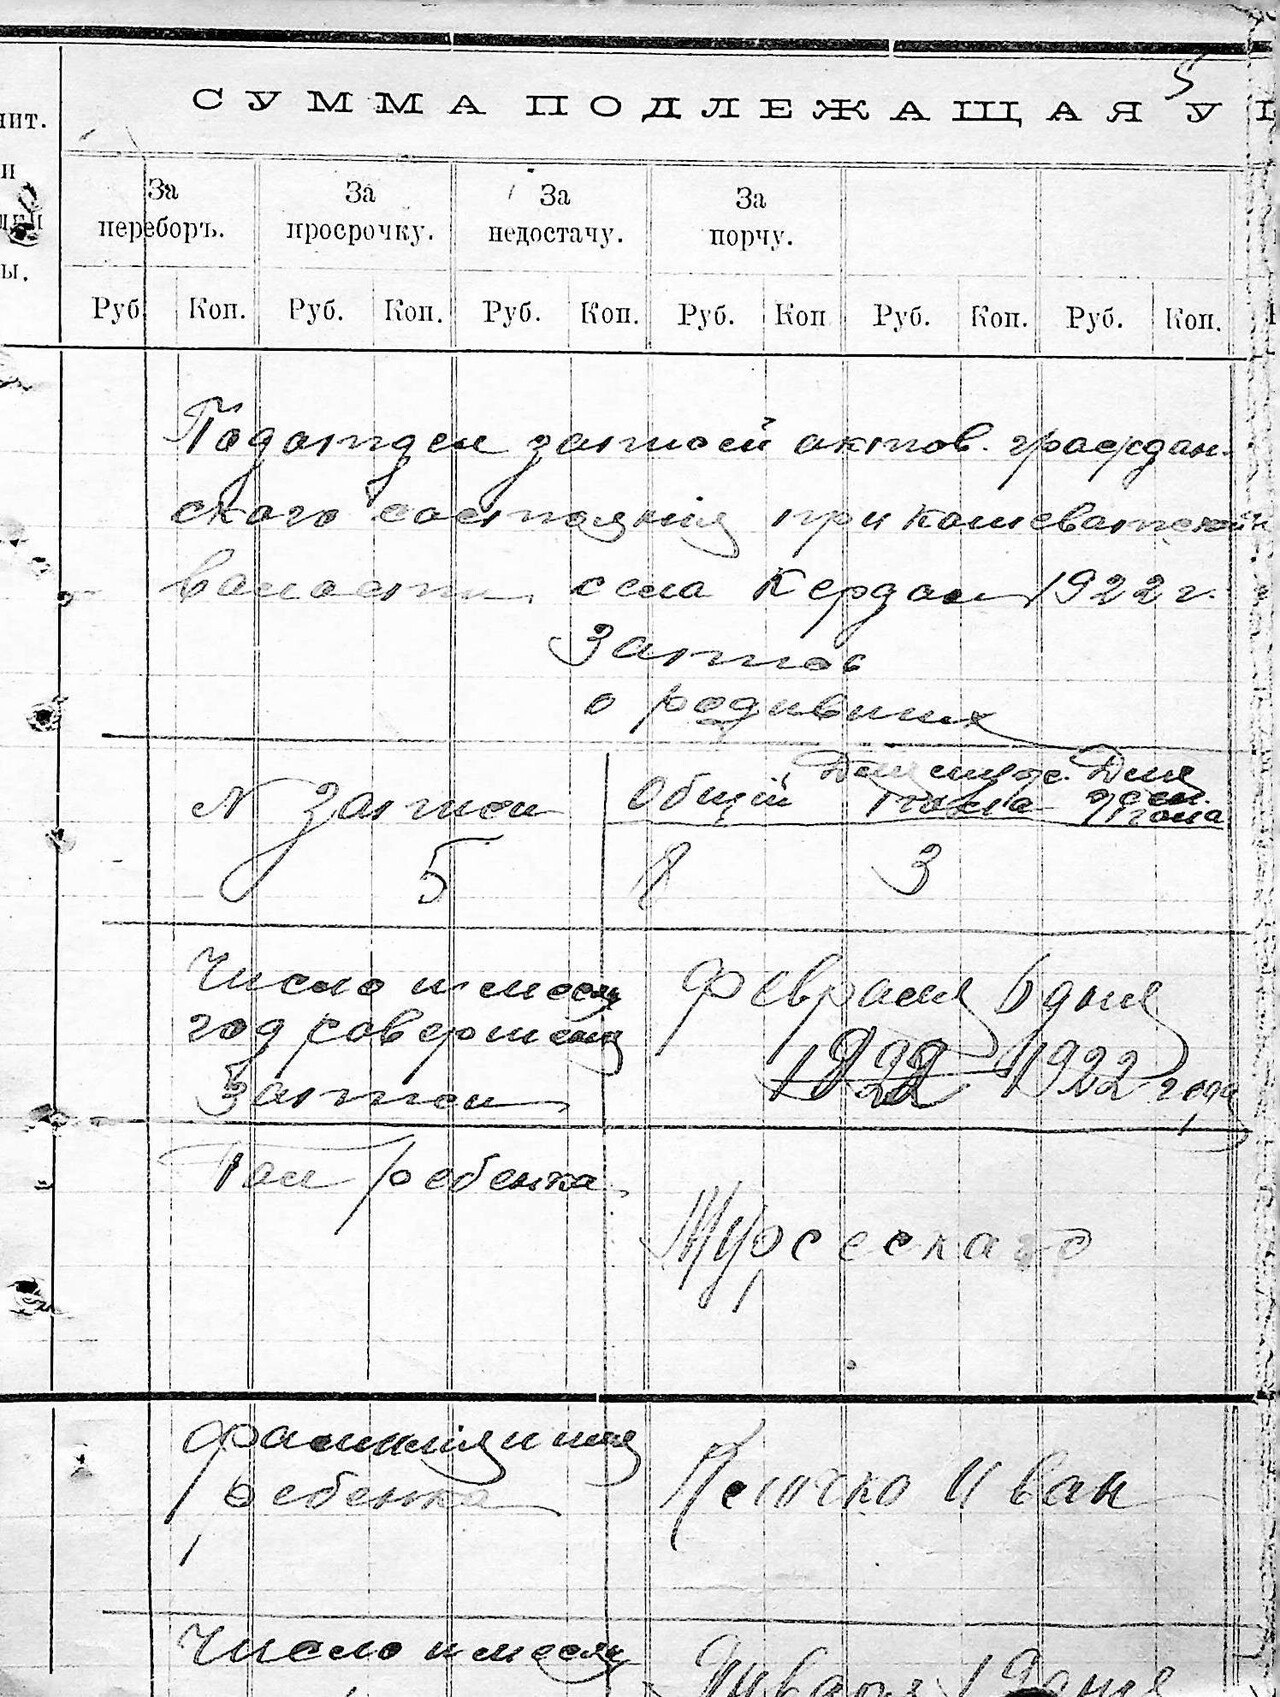 5
СУММА ПОДЛЕЖАЩАЯ У
нит.
и
ы.
За переборъ.
За просрочку.
За недостачу.
За порчу.
Руб. Коп. Руб. Коп. Руб. Коп. Руб. Коп Руб. Коп. Руб. Коп.
Подотдел записей актов граждан-
ского состояния при
волости села Кердан 1922 г.
Запись
о родивших
N Записи Общий Для мужс. пола Для жен. пола
5 8 3
Число и месяц Февраля 6 дня
год совершения 1822 1922 года
Записи
Пол ребенка
Мужеского
Фамилия и имя
ребенка Иван
Число и месяц Января 1 дня